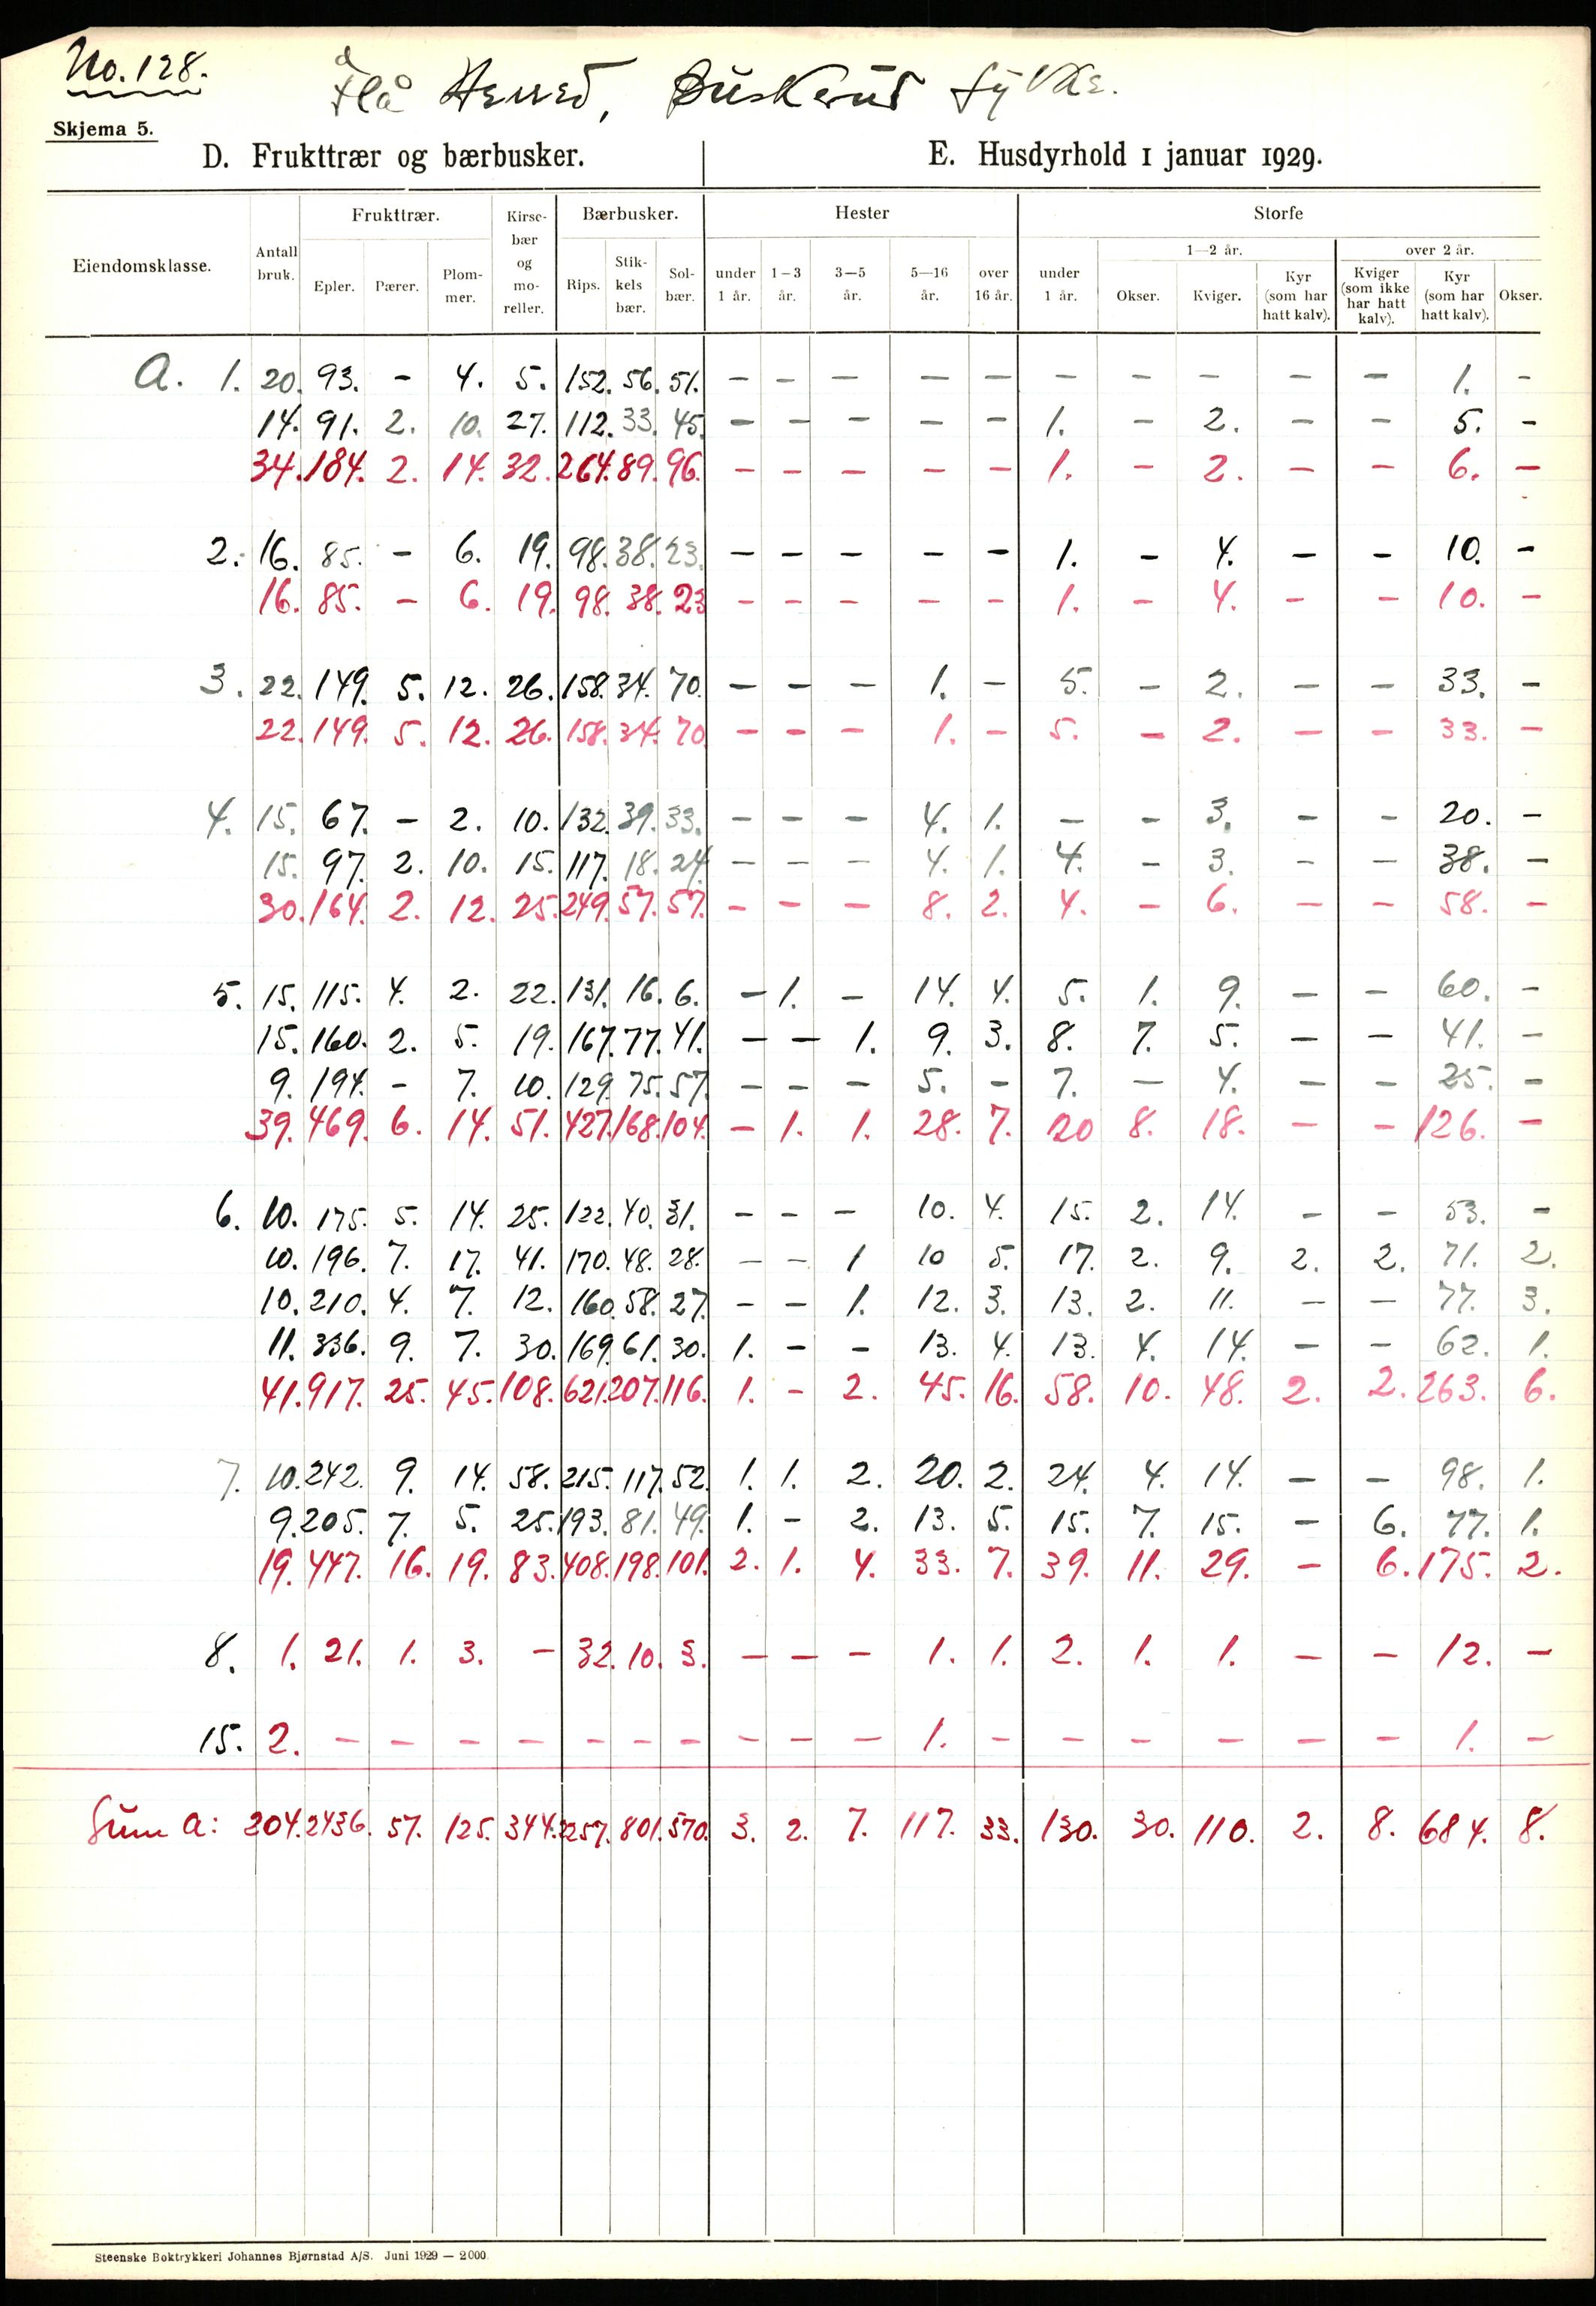 No. 128.
Flå Herred, Buskerud Fylke.
Skjema 5.
D. Frukttrær og bærbusker.
E. Husdyrhold 1 januar 1929.
Eiendomsklasse. Antall bruk. Frukttrær. Epler. Pærer. Plommer. Kirsebær og moreller. Bærbusker. Rips. Stikkelsbær. Solbær. Hester under 1 år. 1–3 år. 3–5 år. 5–16 år. over 16 år. Storfe under 1 år. 1–2 år. Okser. Kviger. Kyr (som har hatt kalv). over 2 år. Kviger (som ikke har hatt kalv). Kyr (som har hatt kalv). Okser.
A. 1. 20. 93. - 4. 5. 152. 56. 51. - - - - - - - - - - 1. -
14. 91. 2. 10. 27. 112. 33. 45. - - - - - 1. - 2. - - 5. -
34. 184. 2. 14. 32. 264. 89. 96. - - - - - 1. - 2. - - 6. -
2. 16. 85. - 6. 19. 98. 38. 23. - - - - - 1. - 4. - - 10. -
16. 85. - 6. 19. 98. 38. 23 - - - - - 1. - 4. - - 10. -
3. 22. 149. 5. 12. 26. 158. 34. 70. - - - 1. - 5. - 2. - - 33. -
22. 149. 5. 12. 26. 158. 34. 70 - - - 1. - 5. - 2. - - 33. -
4. 15. 67. - 2. 10. 132. 39. 33. - - - 4. 1. - - 3. - - 20. -
15. 97. 2. 10. 15. 117. 18. 24 - - - 4. 1. 4. - 3. - - 38. -
30. 164. 2. 12. 25. 249. 57. 57. - - - 8. 2. 4. - 6. - - 58. -
5. 15. 115. 4. 2. 22. 131. 16. 6. - 1. - 14. 4. 5. 1. 9. - - 60. -
15. 160. 2. 5. 19. 167. 77. 41. - - 1. 9. 3. 8. 7. 5. - - 41. -
9. 194. - 7. 10. 129. 75. 57. - - - 5. - 7. - 4. - - 25. -
39. 469. 6. 14. 51. 427. 168. 104. - 1. 1. 28. 7. 20 8. 18. - - 126. -
6. 10. 175. 5. 14. 25. 122. 40. 31. - - - 10. 4. 15. 2. 14. - - 53. -
10. 196. 7. 17. 41. 170. 48. 28. - - 1 10 5. 17. 2. 9. 2. 2. 71. 2.
10. 210. 4. 7. 12. 160. 58. 27. - - 1. 12. 3. 13. 2. 11. - - 77. 3.
11. 336. 9. 7. 30. 169. 61. 30. 1. - - 13. 4. 13. 4. 14. - - 62. 1.
41. 917. 25. 45. 108. 621. 207. 116. 1. - 2. 45. 16. 58. 10. 48. 2. 2. 263. 6.
7. 10. 242. 9. 14. 58. 215. 117. 52. 1. 1. 2. 20. 2. 24. 4. 14. - - 98. 1.
9. 205. 7. 5. 25. 193. 81. 49. 1. - 2. 13. 5. 15. 7. 15. - 6. 77. 1.
19. 447. 16. 19. 83. 408. 198. 101. 2. 1. 4. 33. 7. 39. 11. 29. - 6. 175. 2.
8. 1. 21. 1. 3. - 32. 10. 3. - - - 1. 1. 2. 1. 1. - - 12. -
15. 2. - - - - - - - - - - 1. - - - - - - 1. -
Sum A: 204. 2436. 57. 125. 344. 2257. 801. 570. 3. 2. 7. 117. 33. 130. 30. 110. 2. 8. 684. 8.
Steenske Boktrykkeri Johannes Bjørnstad A/S. Juni 1929 — 2000.